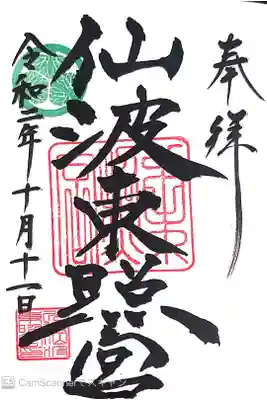 奉拝
仙波東照宮
令和二年十月十一日
CamScannerでスキャン